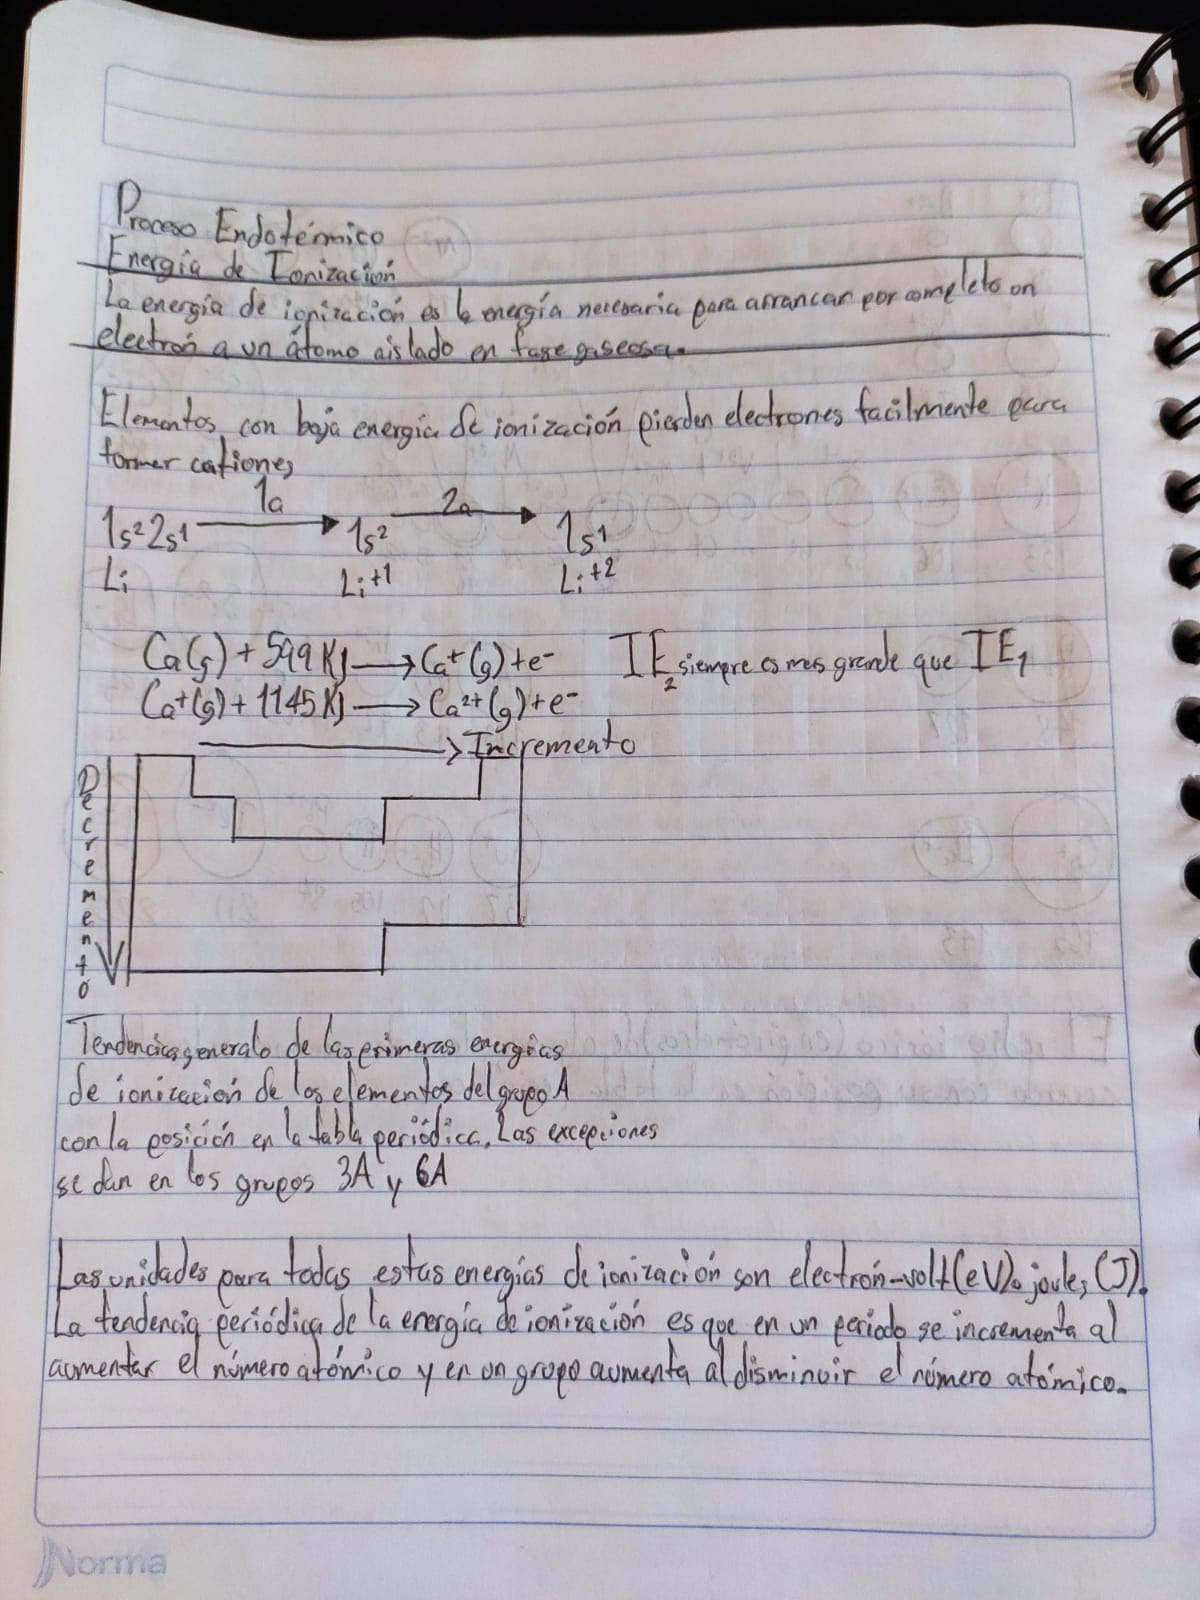 Proceso Endotérmico
Energía de Ionización
La energía de ionización es la energía necesaria para arrancar por completo un
electrón a un átomo aislado en fase gaseosa.
Elementos con baja energía de ionización pierden electrones facilmente para
formar cationes
1a 2a
1s² 2s¹ → 1s² → 1s¹
Li Li⁺¹ Li⁺²
Ca(g) + 599 KJ → Ca⁺(g) + e⁻ IE₂ siempre es mas grande que IE₁
Ca⁺(g) + 1145 KJ → Ca²⁺(g) + e⁻
→ Incremento
Decremento
Tendencias generals de las primeras energías
de ionización de los elementos del grupo A
con la posición en la tabla periódica. Las excepciones
se dan en los grupos 3A y 6A
Las unidades para todas estas energías de ionización son electrón-volt (eV) o joules (J).
La tendencia periódica de la energía de ionización es que en un periodo se incrementa al
aumentar el número atómico y en un grupo aumenta al disminuir el número atómico.
Norma